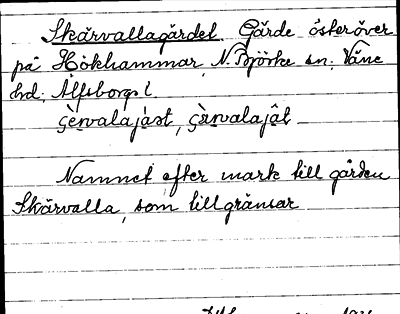 Skärvallagärdet. Gärde österöver
på Hökhammar, N. Björke sn, Väne
hd, Älfsborgs l.
Namnet efter mark till gården
Skärvalla, som tillgränsar